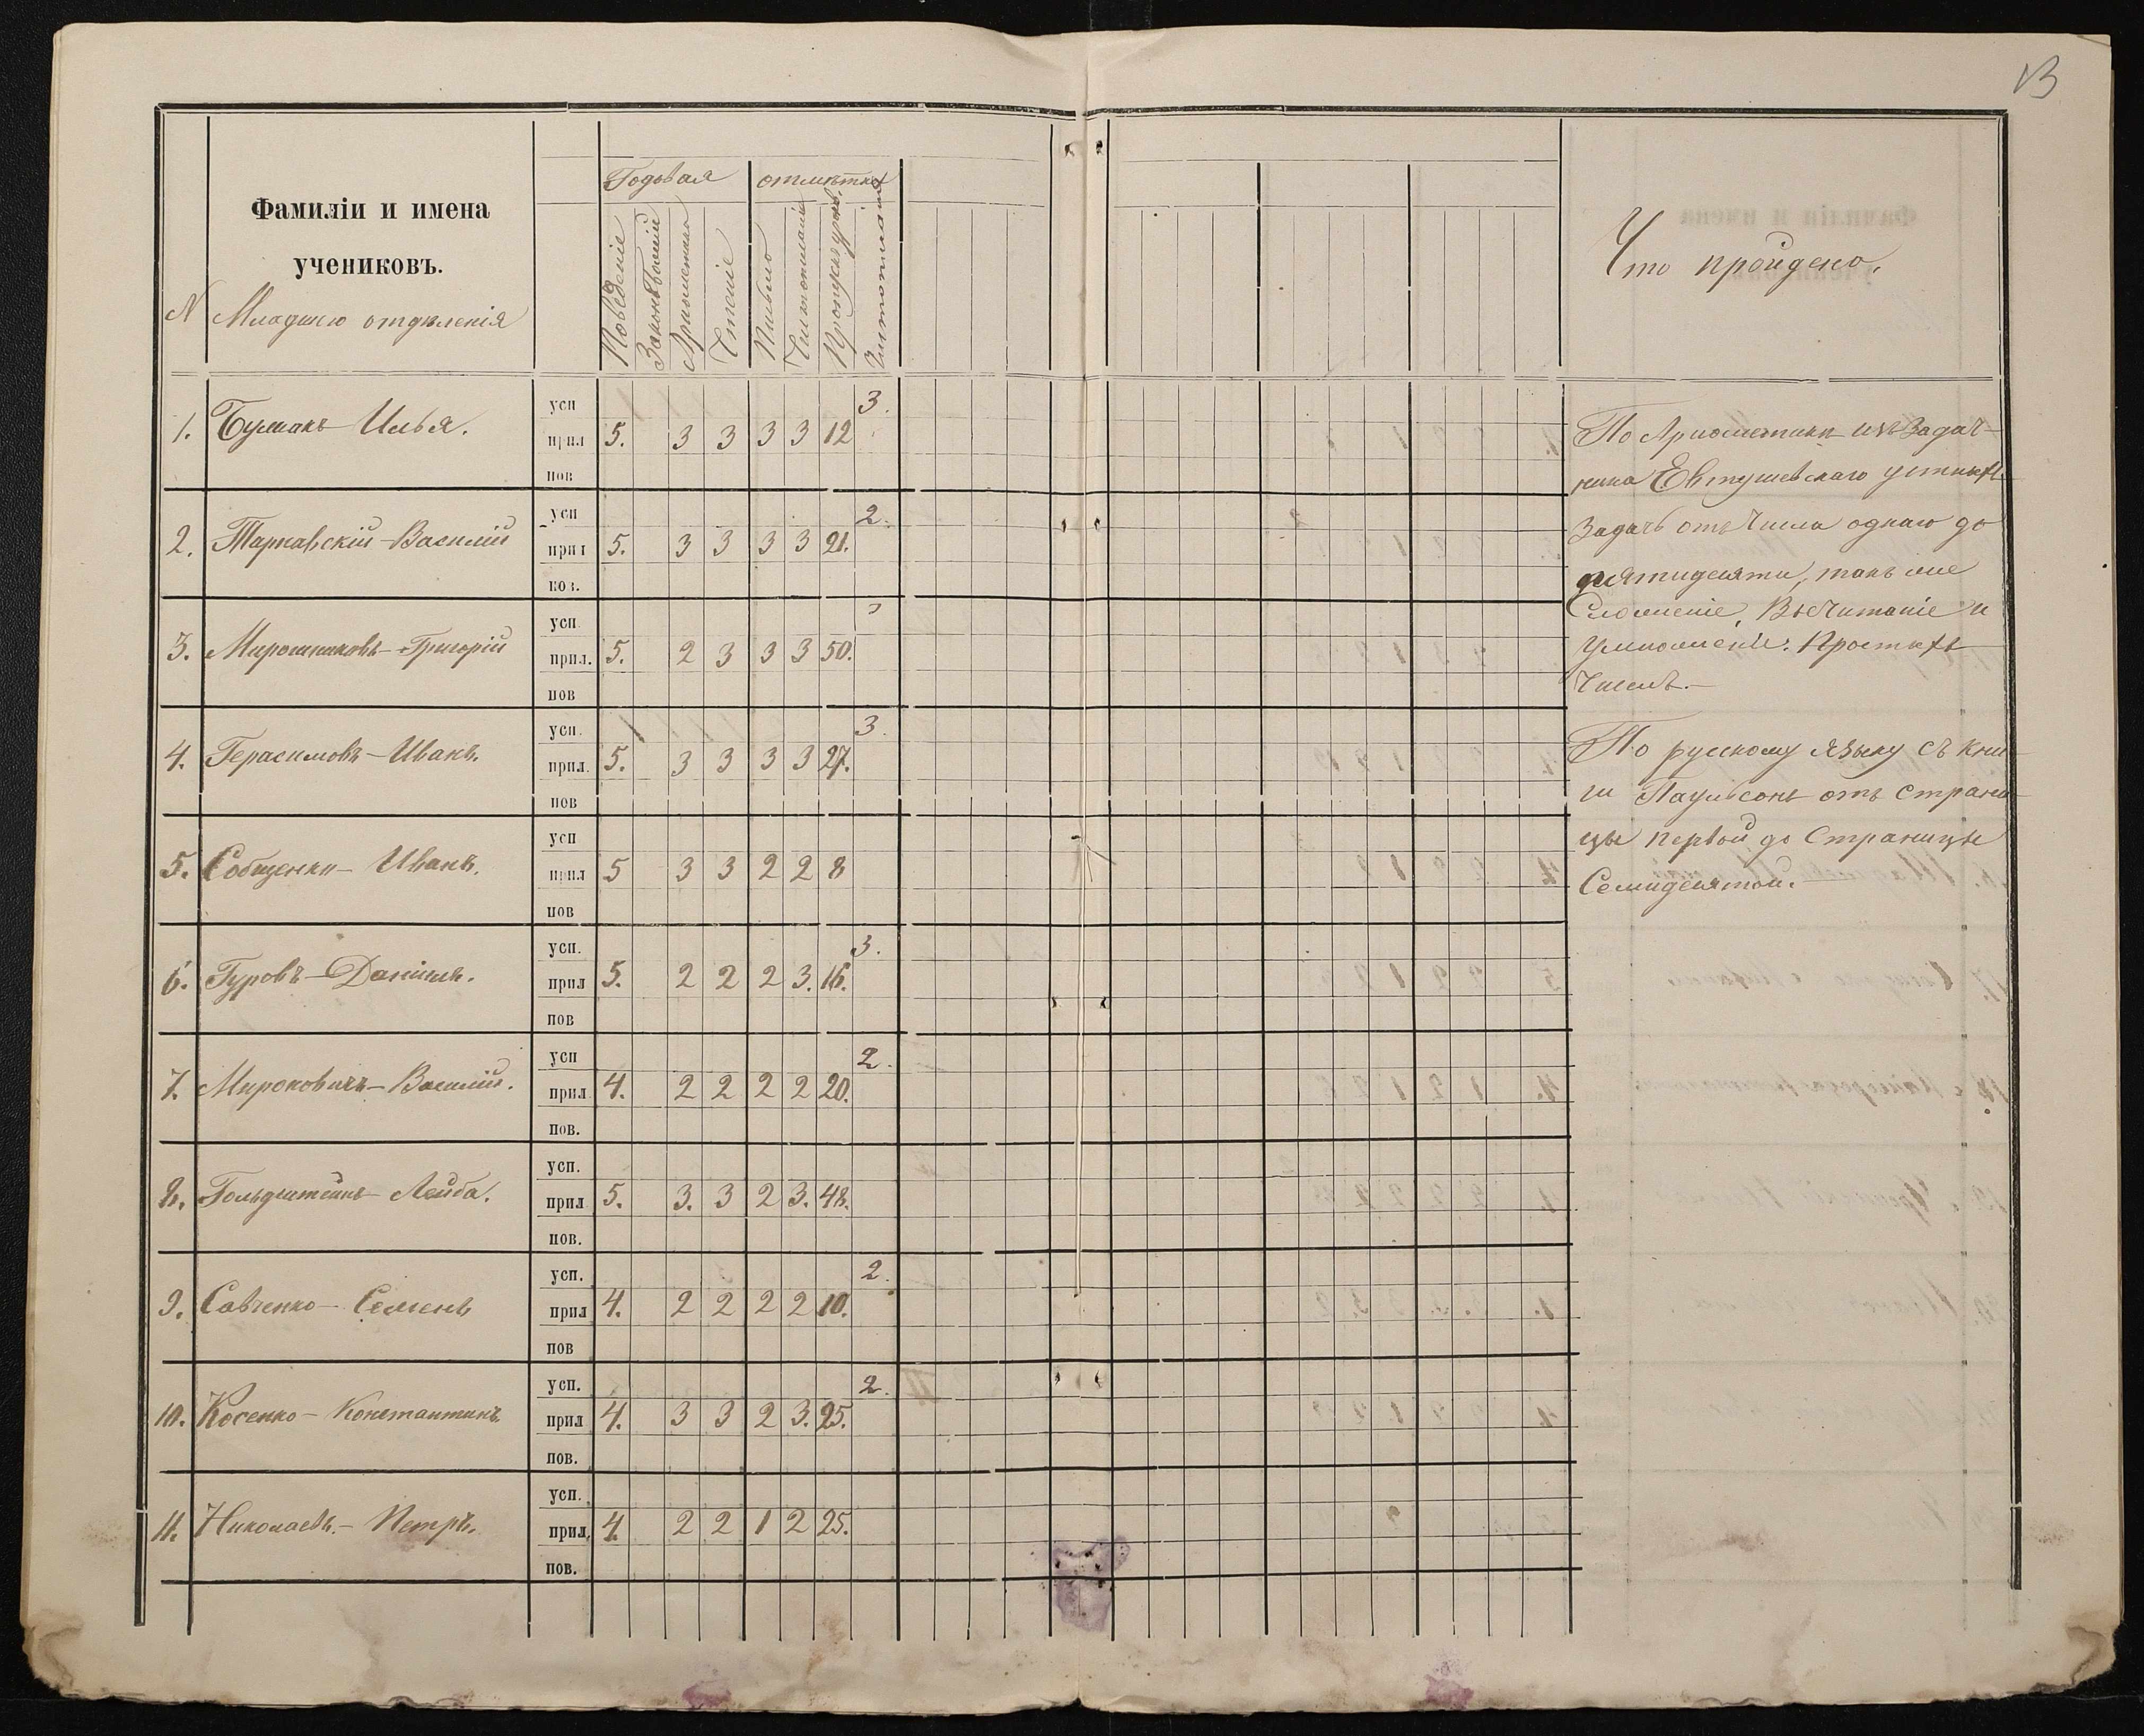 13
Фамиліи и имена
учениковъ.
N Младшаго отдѣленія
Годовая отмѣтка
Поведеніе
Законъ Божій
Ариѳметика
Чтеніе
Письмо
Чистописаніе
Что пройдено.
1. Бумакъ Илья.
усп 3.
прил 5. 3 3 3 3 12
пов
2. Тарнавскій Василій
усп 2.
прил 5. 3 3 3 3 21.
пов.
3. Мирошниковъ Григорій
усп.
прил. 5. 2 3 3 3 50.
пов
4. Герасимовъ Иванъ.
усп. 3.
прил. 5. 3 3 3 3 27.
пов
5. Собценко Иванъ.
усп
прил 5 3 3 2 2 8
пов
6. Гуровъ Даніилъ.
усп. 3.
прил 5. 2 2 2 3. 16.
пов
7. Мироковичъ Василій.
усп 2.
прил 4. 2 2 2 2 20.
пов.
8. Гольдштейнъ Лейба.
усп.
прил 5. 3. 3 2 3. 48.
пов.
9. Савченко Семенъ
усп. 2.
прил 4. 2 2 2 2 10.
пов
10. Косенко Константинъ
усп. 2.
прил 4. 3 3 2 3. 25.
пов.
11. Николаевъ. Петръ.
усп.
прил. 4. 2 2 1 2 25.
пов.
По Ариѳметикѣ изъ Задач-
ника Евтушевскаго устныхъ
задачъ отъ числа однаго до
пятидесяти, такъ же
Сложеніе, Вычитаніе и
умноженіе. Простыхъ
Чиселъ.
По русскому языку съ кни-
ги Паульсонъ отъ страни-
цы первой до Страницы
Семидесятой.